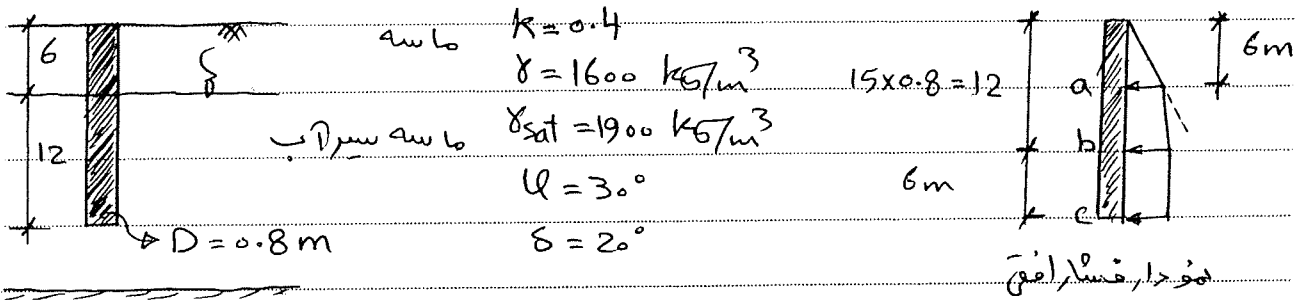 6
12
ماسه
ماسه سیرآب
D = 0.8 m
K = 0.4
γ = 1600 kg/m³
γsat = 1900 kg/m³
φ = 30°
δ = 20°
15×0.8 = 12
6m
a
b
c
6m
نمودار فشار افقی